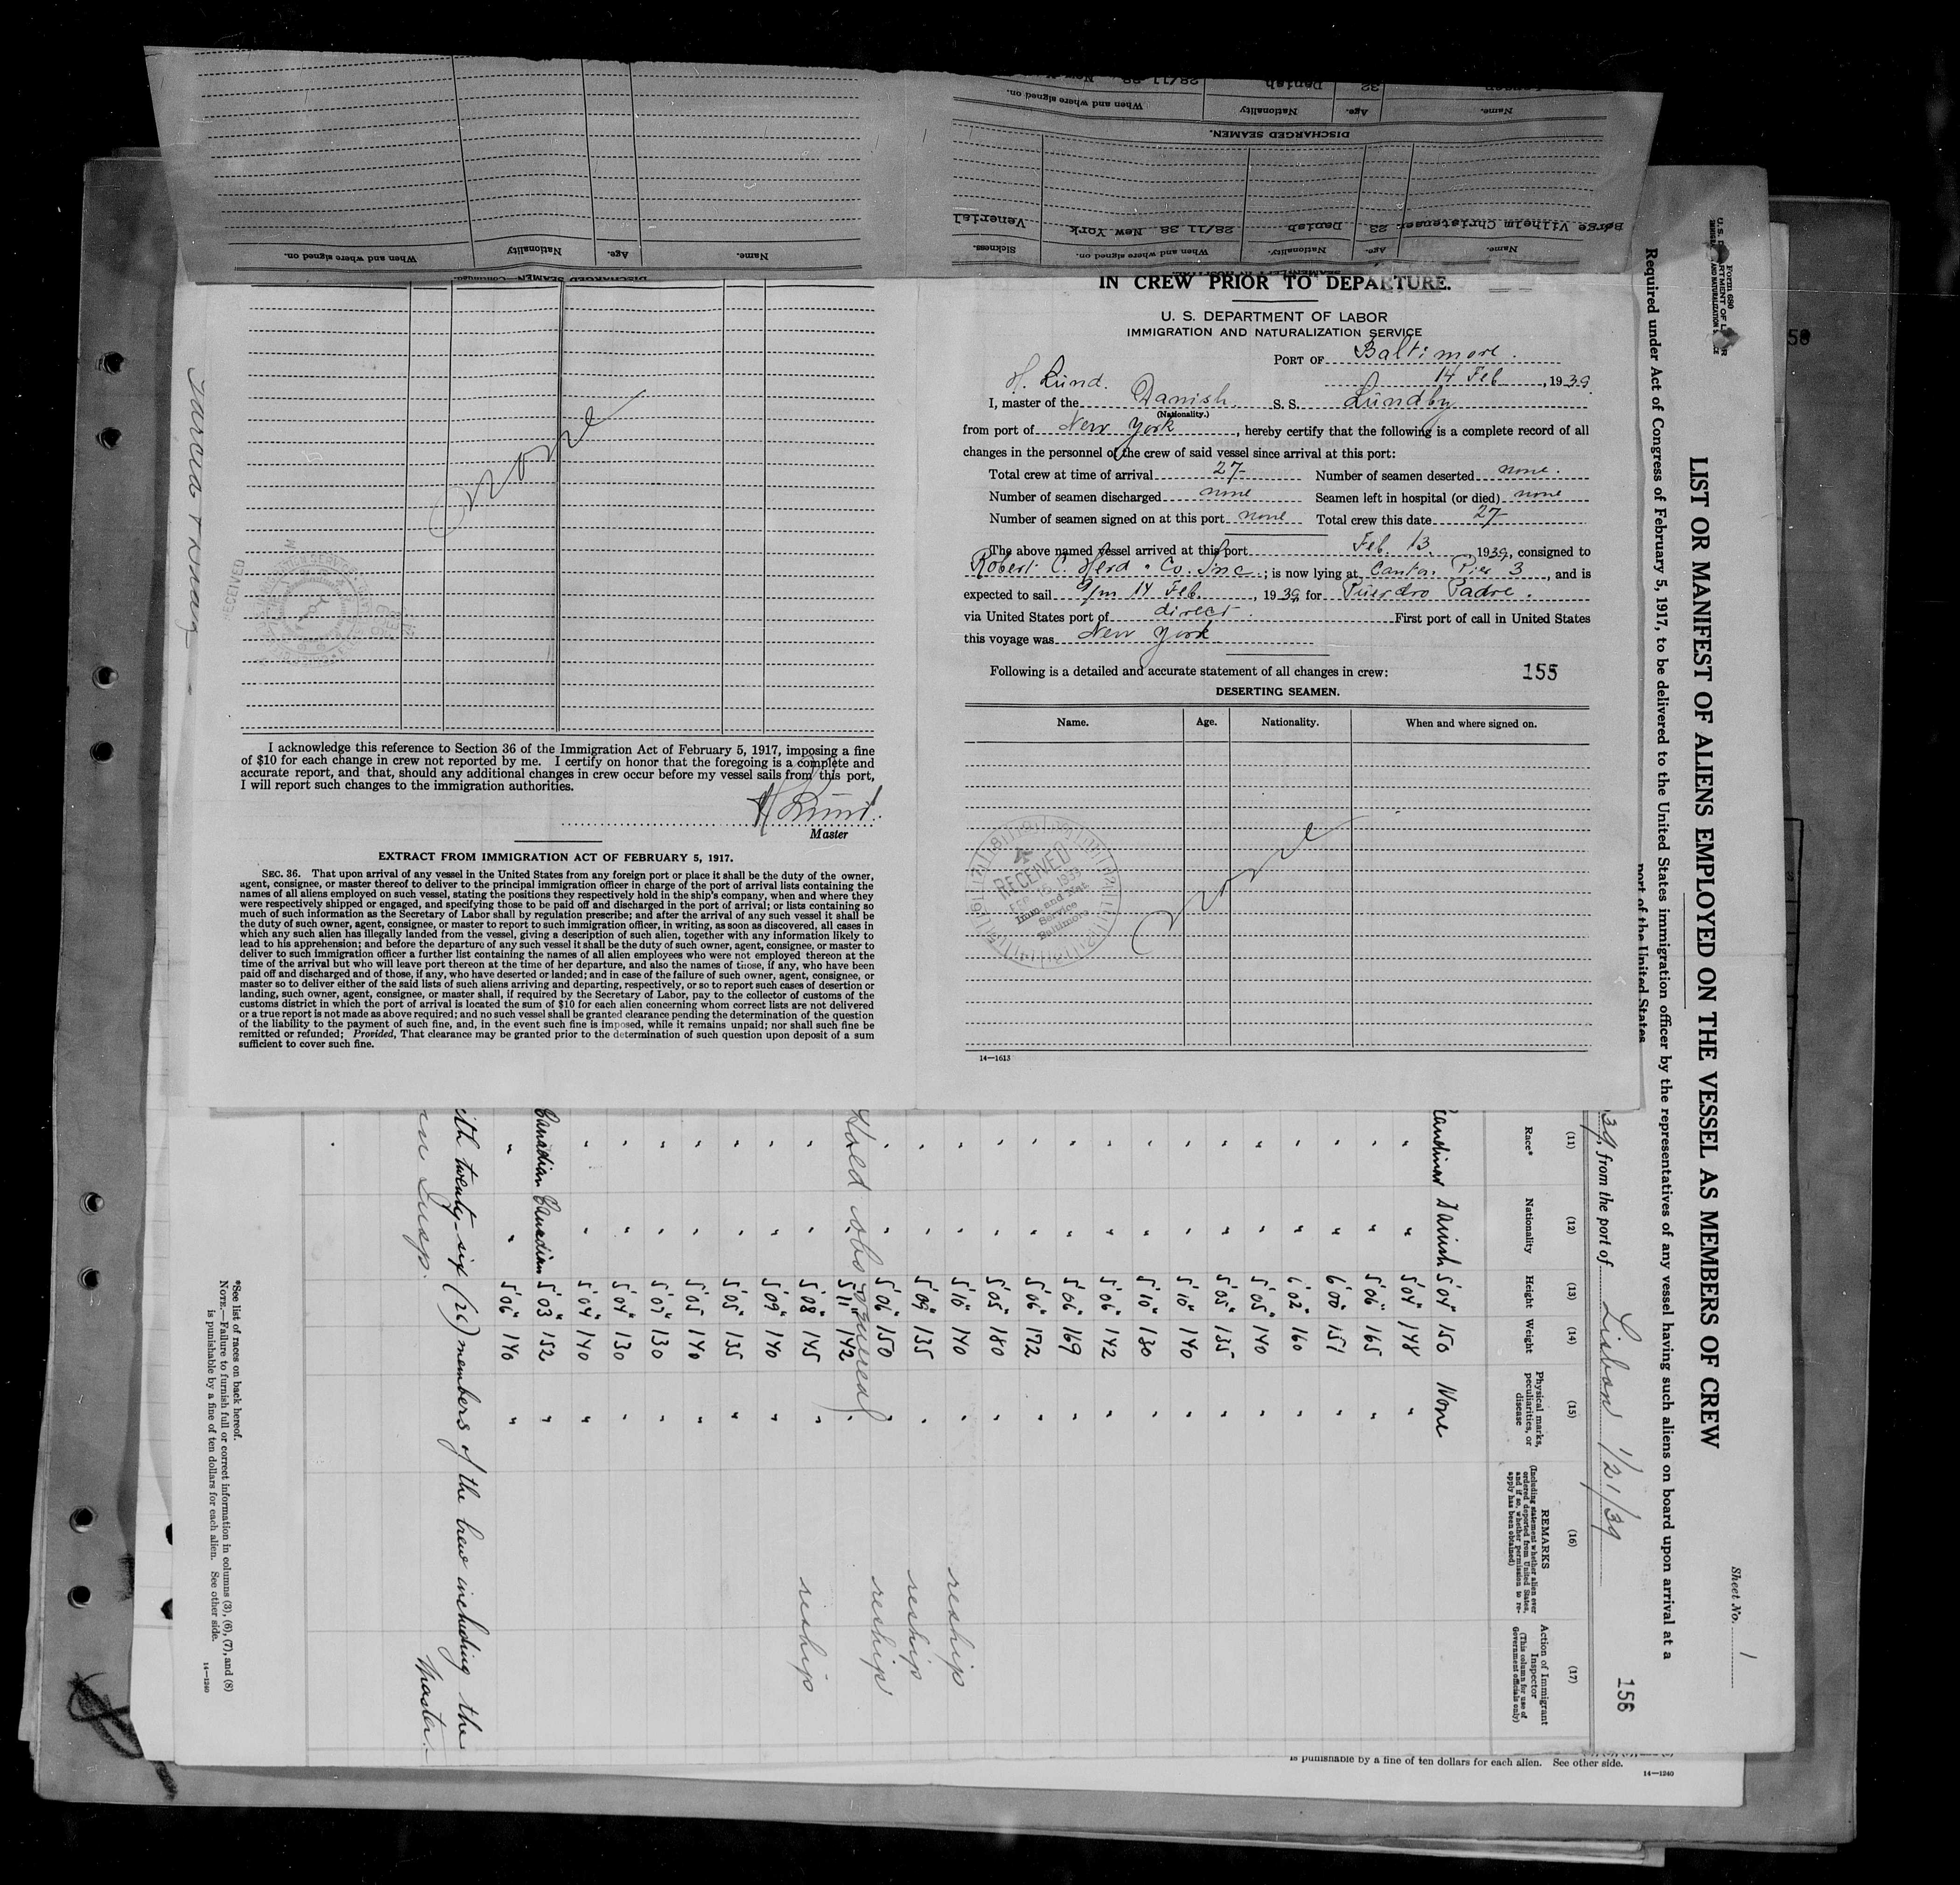 When and where signed on.
Nationality
Age.
Name.
Name.
Age.
Nationality
When and where signed on.
32
Danish
DISCHARGED SEAMEN.
Børge Vilhelm Christensen 23 Danish 28/11 38 New York Venerial
Name.
Age.
Nationality.
When and where signed on.
Sickness.
IN CREW PRIOR TO DEPARTURE.
U. S. DEPARTMENT OF LABOR
IMMIGRATION AND NATURALIZATION SERVICE
PORT OF Baltimore.
14 Feb, 1939
H. Lund.
I, master of the Danish S. S. Lundby
(Nationality.)
from port of New York, hereby certify that the following is a complete record of all
changes in the personnel of the crew of said vessel since arrival at this port:
Total crew at time of arrival 27 Number of seamen deserted none.
Number of seamen discharged none Seamen left in hospital (or died) none
Number of seamen signed on at this port none Total crew this date 27
The above named vessel arrived at this port Feb. 13 1939, consigned to
Robert C. Herd & Co. Inc.; is now lying at Canton Pier 3, and is
expected to sail 14 Feb., 1939 for Padre.
via United States port of direct. First port of call in United States
this voyage was New York
Following is a detailed and accurate statement of all changes in crew: 155
DESERTING SEAMEN.
Name. Age. Nationality. When and where signed on.
none
RECEIVED
Imm. and Nat.
Service
Baltimore
14—1613
none
RECEIVED
I acknowledge this reference to Section 36 of the Immigration Act of February 5, 1917, imposing a fine
of $10 for each change in crew not reported by me. I certify on honor that the foregoing is a complete and
accurate report, and that, should any additional changes in crew occur before my vessel sails from this port,
I will report such changes to the immigration authorities.
H Lund.
Master
EXTRACT FROM IMMIGRATION ACT OF FEBRUARY 5, 1917.
SEC. 36. That upon arrival of any vessel in the United States from any foreign port or place it shall be the duty of the owner,
agent, consignee, or master thereof to deliver to the principal immigration officer in charge of the port of arrival lists containing the
names of all aliens employed on such vessel, stating the positions they respectively hold in the ship's company, when and where they
were respectively shipped or engaged, and specifying those to be paid off and discharged in the port of arrival; or lists containing so
much of such information as the Secretary of Labor shall by regulation prescribe; and after the arrival of any such vessel it shall be
the duty of such owner, agent, consignee, or master to report to such immigration officer, in writing, as soon as discovered, all cases in
which any such alien has illegally landed from the vessel, giving a description of such alien, together with any information likely to
lead to his apprehension; and before the departure of any such vessel it shall be the duty of such owner, agent, consignee, or master to
deliver to such immigration officer a further list containing the names of all alien employees who were not employed thereon at the
time of the arrival but who will leave port thereon at the time of her departure, and also the names of those, if any, who have been
paid off and discharged and of those, if any, who have deserted or landed; and in case of the failure of such owner, agent, consignee, or
master so to deliver either of the said lists of such aliens arriving and departing, respectively, or so to report such cases of desertion or
landing, such owner, agent, consignee, or master shall, if required by the Secretary of Labor, pay to the collector of customs of the
customs district in which the port of arrival is located the sum of $10 for each alien concerning whom correct lists are not delivered
or a true report is not made as above required; and no such vessel shall be granted clearance pending the determination of the question
of the liability to the payment of such fine, and, in the event such fine is imposed, while it remains unpaid; nor shall such fine be
remitted or refunded; Provided, That clearance may be granted prior to the determination of such question upon deposit of a sum
sufficient to cover such fine.
Form 680
Sheet No. 1
LIST OR MANIFEST OF ALIENS EMPLOYED ON THE VESSEL AS MEMBERS OF CREW
Required under Act of Congress of February 5, 1917, to be delivered to the United States immigration officer by the representatives of any vessel having such aliens on board upon arrival at a
port of the United States
39, from the port of Lisbon 1/21/39
156
(11) (12) (13) (14) (15) (16) (17)
Race* Nationality Height Weight Physical marks, peculiarities, or disease
REMARKS
(Including statement whether alien ever ordered deported from United States, and if so, whether permission to re-apply has been obtained)
Action of Immigrant Inspector
(This column for use of Government officials only)
Danish 5'04" 150 None
" " 5'04" 148 "
" " 5'06" 165 "
" " 6'00" 151 "
" " 6'02" 160 "
" " 5'05" 140 "
" " 5'05" 135 "
" " 5'10" 140 "
" " 5'10" 130 "
" " 5'06" 142 "
" " 5'06" 169 "
" " 5'06" 172 "
" " 5'05" 180 "
" " 5'10" 140 " reship
" " 5'09" 135 " reship
" " 5'06" 150 " reship
" " 5'11" 142 "
Hold
" " 5'08" 145 " reship
" " 5'09" 140 "
" " 5'05" 135 "
" " 5'05 140 "
" " 5'07" 130 "
" " 5'04" 130 "
" " 5'04" 140 "
Canadian Canadian 5'03" 152 "
" " 5'06" 140 "
twenty-six (26) members of the crew including the
Master.
Insp.
*See list of races on back hereof.
NOTE.—Failure to furnish full or correct information in columns (3), (6), (7), and (8)
is punishable by a fine of ten dollars for each alien. See other side.
14—1240
is punishable by a fine of ten dollars for each alien. See other side.
14—1240
58